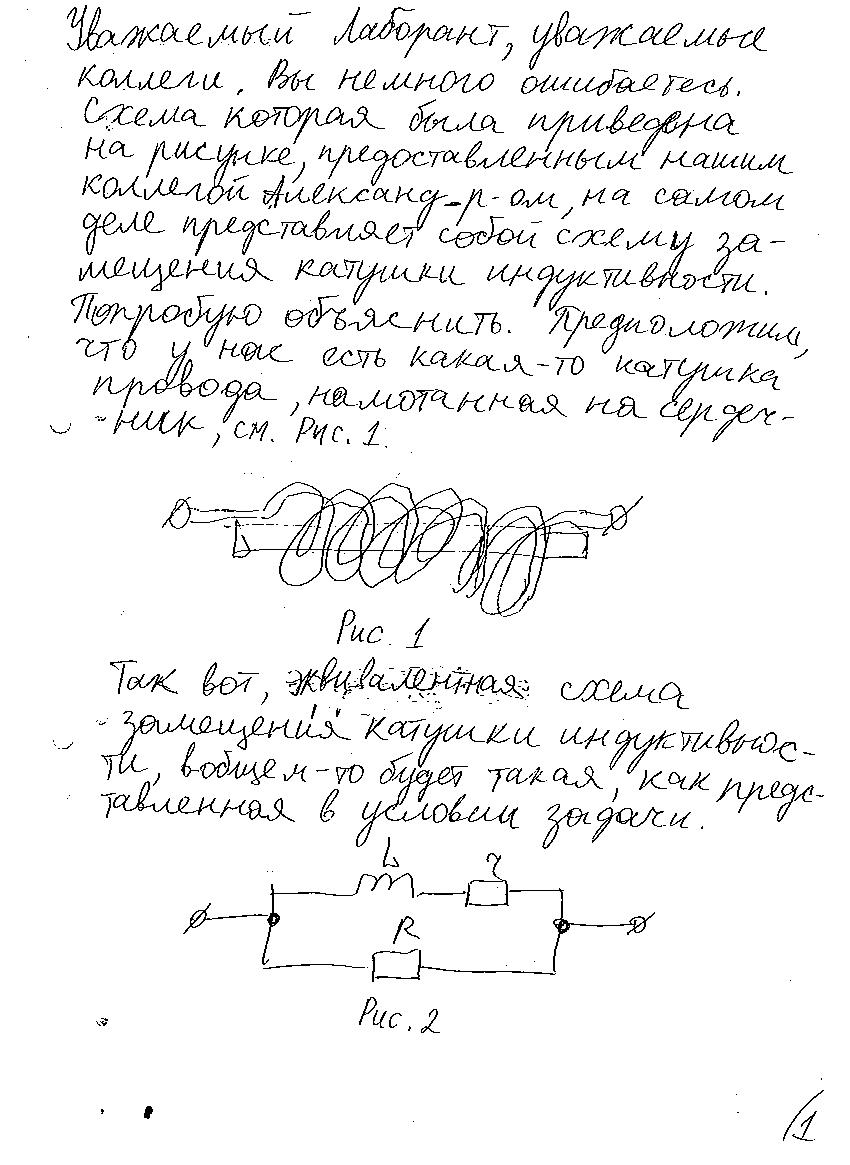 Уважаемый Лаборант, уважаемые
коллеги. Вы немного ошибаетесь.
Схема которая была приведена
на рисунке, предоставленным нашим
коллегой Александ-р-ом, на самом
деле представляет собой схему за-
мещения катушки индуктивности.
Попробую объяснить. Предположим,
что у нас есть какая-то катушка
провода, намотанная на сердеч-
-ник, см. Рис. 1.
Рис. 1
Так вот, эквивалентная схема
замещения катушки индуктивнос-
ти, вобщем-то будет такая, как предс-
тавленная в условии задачи.
L
r
R
Рис. 2
1